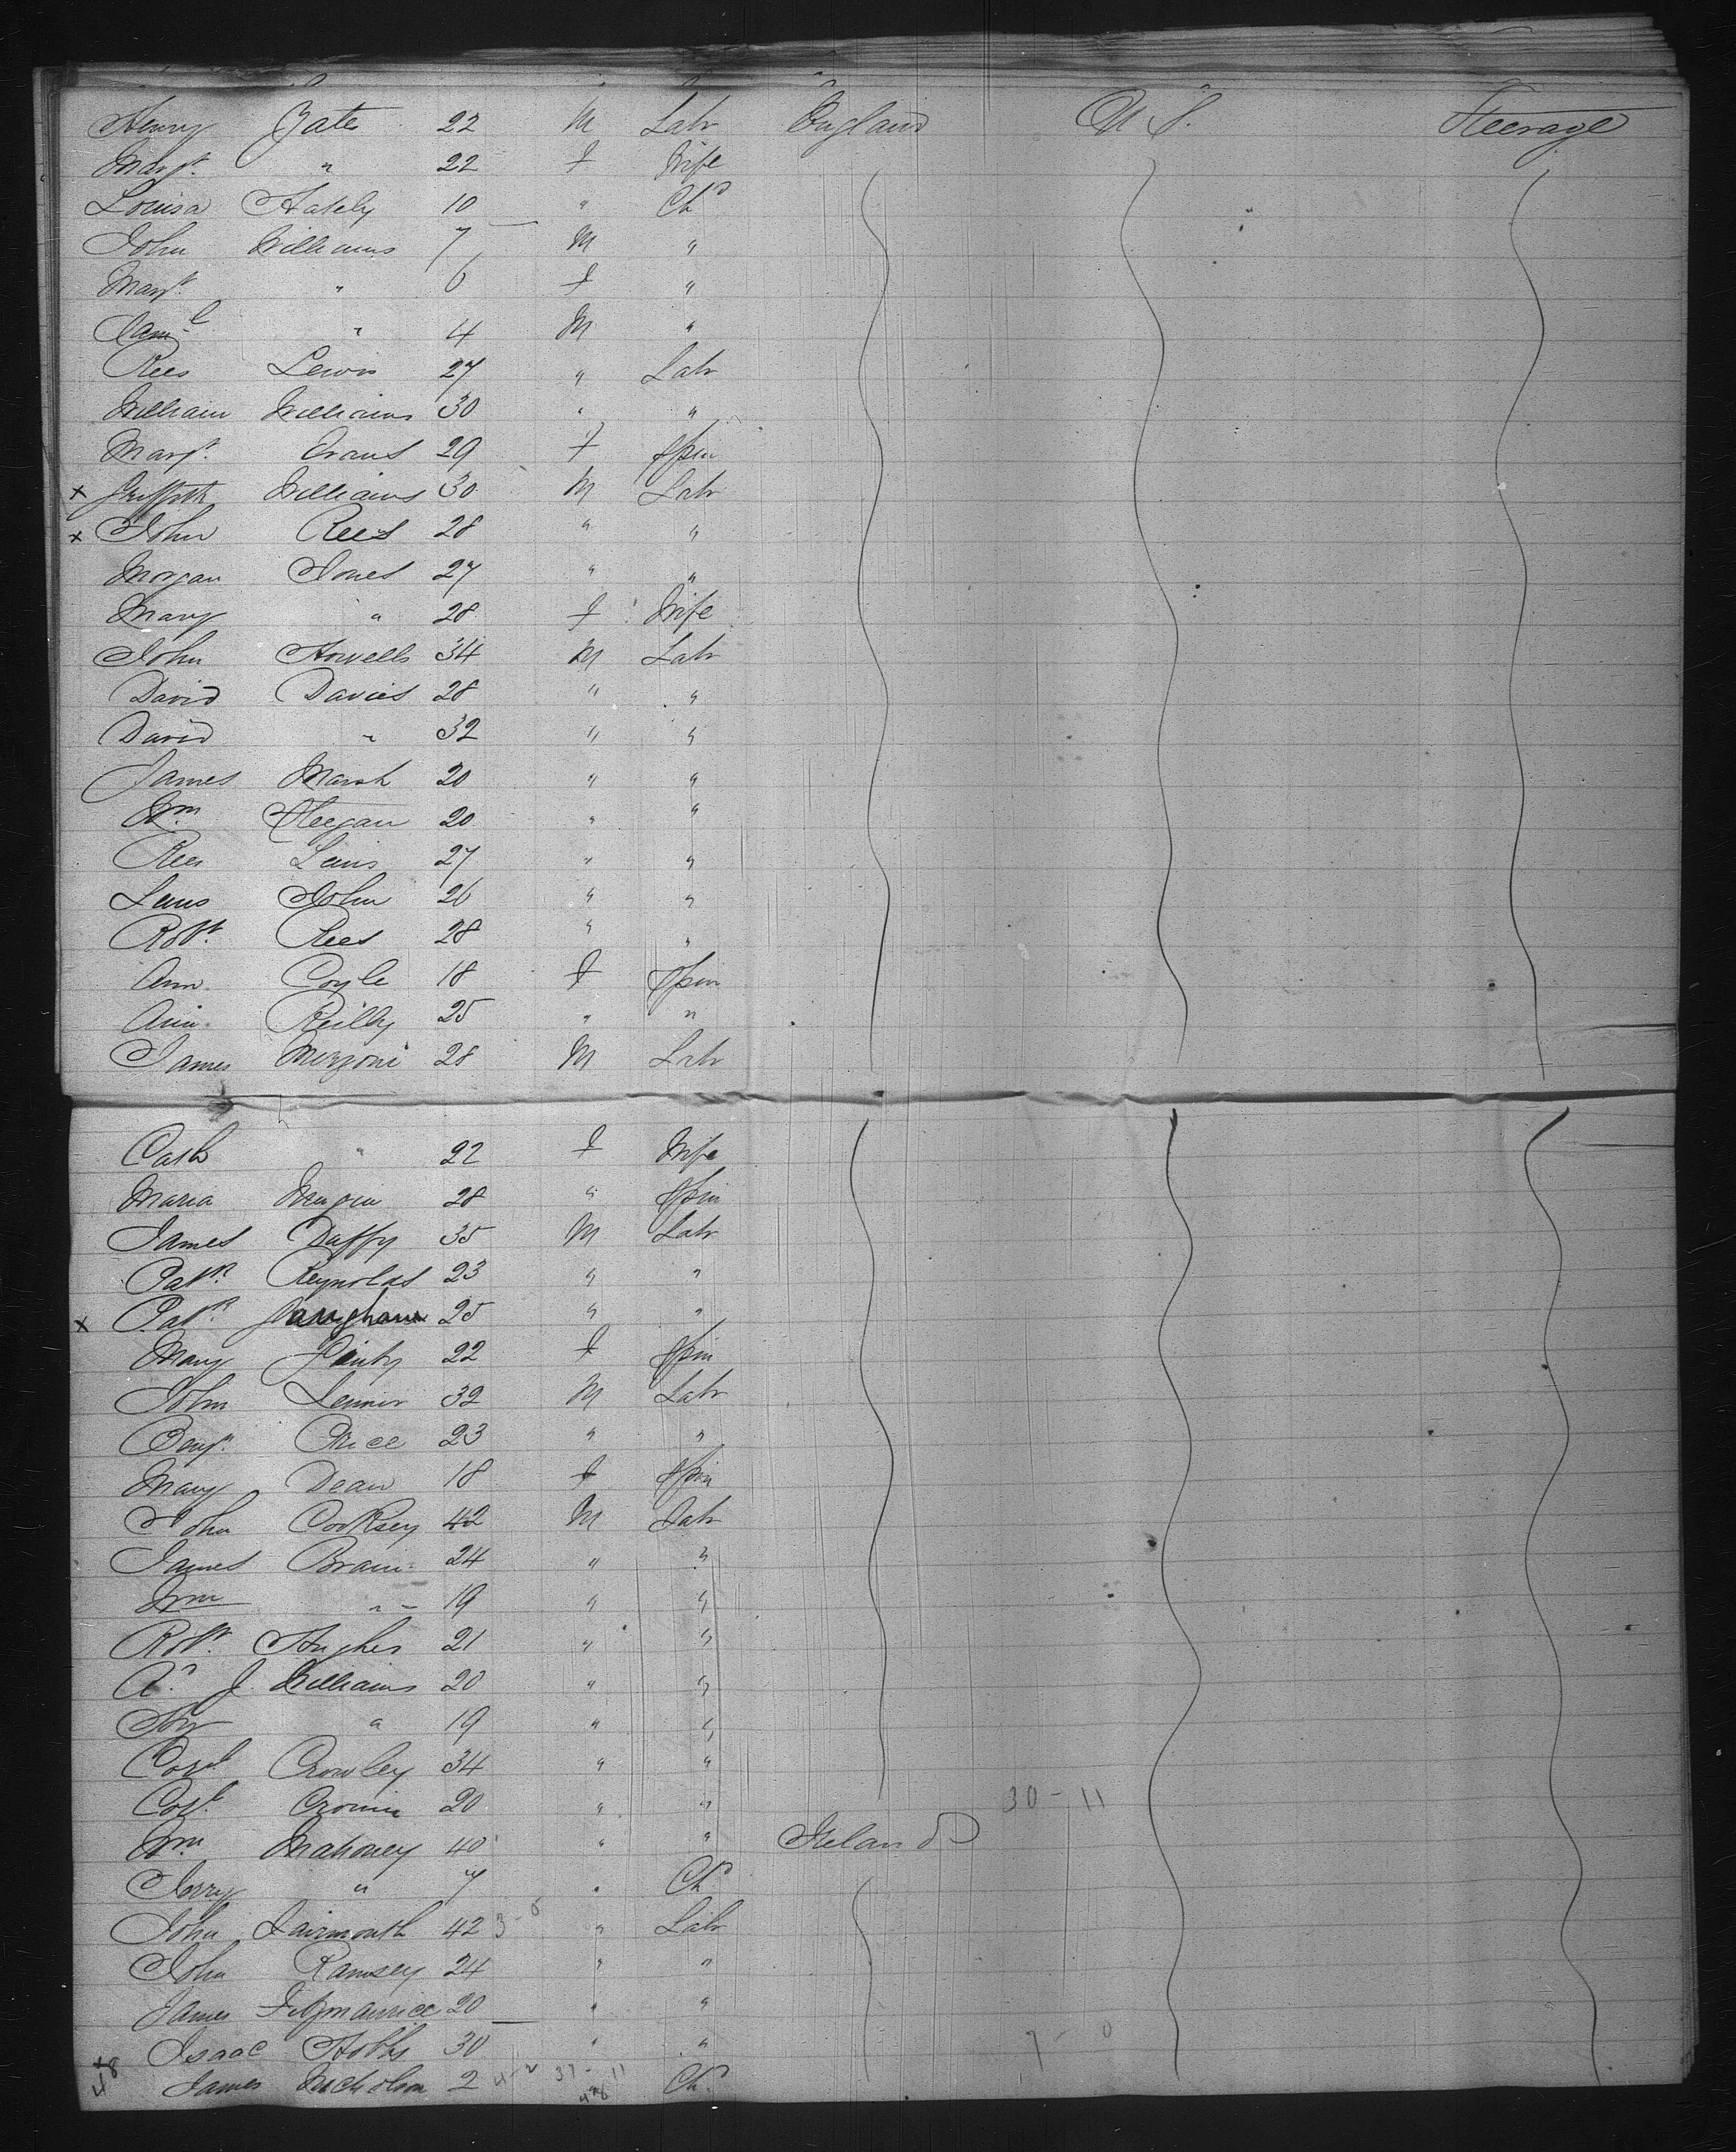 Henry Yate 22 M Labr England U S. Steerage
Margt. " 22 f Wife
Louisa Hately 10 " Chd
John Williams 7 M "
Margt. " 6 f "
Saml " 4 M "
Rees Lewis 27 " Labr
William Williams 30 " "
Margt. Evans 29 f Spin
x Griffith Williams 30 M Labr
x John Rees 28 " "
Morgan Jones 27 " "
Mary " 28 f Wife
John Howells 34 M Labr
David Davies 28 " "
David " 32 " "
James Marsh 20 " "
Wm Keegan 20 " "
Rees Lewis 27 " "
Lewis John 26 " "
Robt. Rees 28 " "
Ann Coyle 18 f Spin
Ann Reilly 25 " "
James 28 M Labr
Cath " 22 f Wife
Maria 28 " Spin
James Duffy 35 M Labr
Patk. Reynolds 23 " "
x Patk. 25 " "
Mary 22 f Spin
John 32 M Labr
Benjn. Price 23 " "
Mary Dean 18 f Spin
John Cooksey 42 M Labr
James Brain 24 " "
Wm " 19 " "
Robt. Hughes 21 " "
J. Williams 20 " "
" 19 " "
Crowley 34 " "
Cronin 20 " " 30 - 11
Wm Mahoney 40 " " Ireland
Jerry " 7 " Chd
John 42 3 - 0 " Labr
John Ramsey 24 " "
James Fitzmaurice 20 " "
Isaac Hobbs 30 " " 7 - 0
48 James Nicholson 2 4-2 37-11 48 Chd